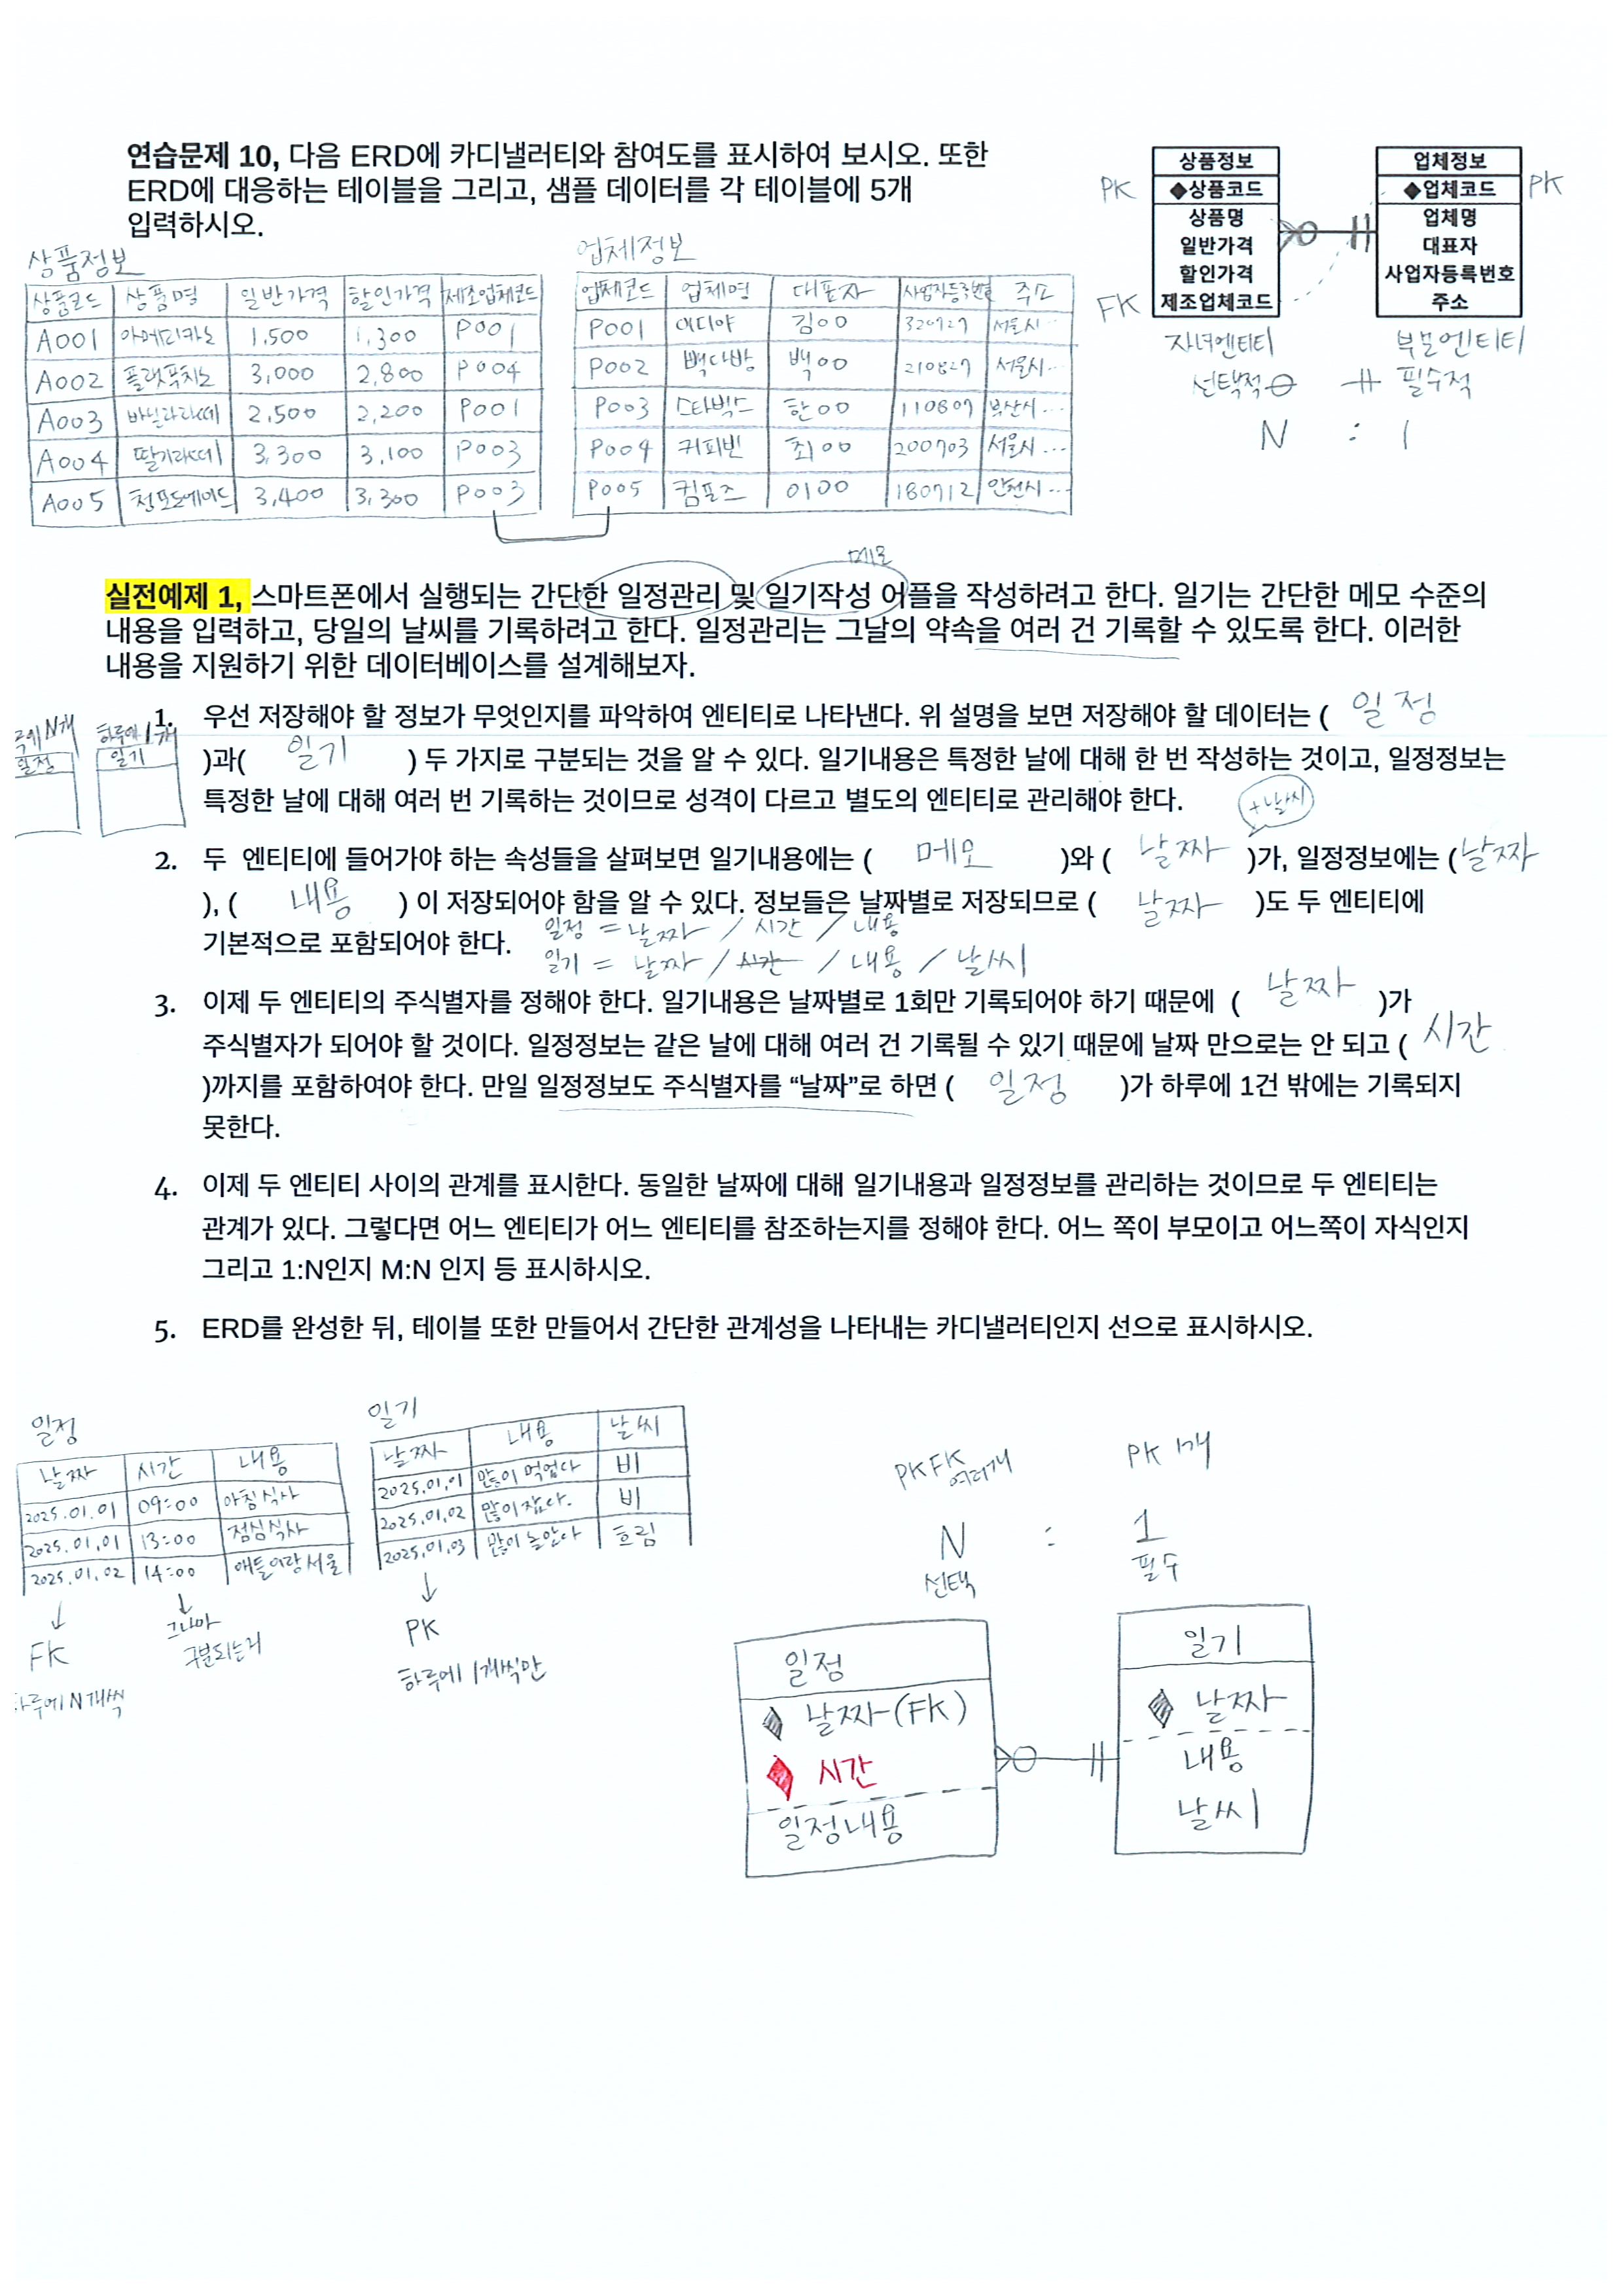 연습문제 10, 다음 ERD에 카디낼러티와 참여도를 표시하여 보시오. 또한
ERD에 대응하는 테이블을 그리고, 샘플 데이터를 각 테이블에 5개
입력하시오.
상품정보
◆상품코드
상품명
일반가격
할인가격
제조업체코드
PK
FK
자녀엔티티
선택적
업체정보
◆업체코드
업체명
대표자
사업자등록번호
주소
PK
부모엔티티
필수적
N : 1
상품정보
상품코드 상품명 일반가격 할인가격 제조업체코드
A001 아메리카노 1,500 1,300 P001
A002 플랫푸치노 3,000 2,800 P004
A003 바닐라라떼 2,500 2,200 P001
A004 딸기라떼 3,300 3,100 P003
A005 청포도에이드 3,400 3,300 P003
업체정보
업체코드 업체명 대표자 사업자등록번호 주소
P001 이디야 김00 320727 서울시…
P002 빽다방 백00 210827 서울시…
P003 스타벅스 한00 110807 부산시…
P004 커피빈 최00 200703 서울시…
P005 컴포즈 이00 180712 인천시…
메모
실전예제 1, 스마트폰에서 실행되는 간단한 일정관리 및 일기작성 어플을 작성하려고 한다. 일기는 간단한 메모 수준의
내용을 입력하고, 당일의 날씨를 기록하려고 한다. 일정관리는 그날의 약속을 여러 건 기록할 수 있도록 한다. 이러한
내용을 지원하기 위한 데이터베이스를 설계해보자.
N개
일정
하루에 1개
일기
1. 우선 저장해야 할 정보가 무엇인지를 파악하여 엔티티로 나타낸다. 위 설명을 보면 저장해야 할 데이터는 ( 일정
)과( 일기 ) 두 가지로 구분되는 것을 알 수 있다. 일기내용은 특정한 날에 대해 한 번 작성하는 것이고, 일정정보는
특정한 날에 대해 여러 번 기록하는 것이므로 성격이 다르고 별도의 엔티티로 관리해야 한다.
+날씨
2. 두 엔티티에 들어가야 하는 속성들을 살펴보면 일기내용에는 ( 메모 )와 ( 날짜 )가, 일정정보에는 ( 날짜
), ( 내용 ) 이 저장되어야 함을 알 수 있다. 정보들은 날짜별로 저장되므로 ( 날짜 )도 두 엔티티에
기본적으로 포함되어야 한다.
일정 = 날짜 / 시간 / 내용
일기 = 날짜 / 시간 / 내용 / 날씨
3. 이제 두 엔티티의 주식별자를 정해야 한다. 일기내용은 날짜별로 1회만 기록되어야 하기 때문에 ( 날짜 )가
주식별자가 되어야 할 것이다. 일정정보는 같은 날에 대해 여러 건 기록될 수 있기 때문에 날짜 만으로는 안 되고 ( 시간
)까지를 포함하여야 한다. 만일 일정정보도 주식별자를 “날짜”로 하면 ( 일정 )가 하루에 1건 밖에는 기록되지
못한다.
4. 이제 두 엔티티 사이의 관계를 표시한다. 동일한 날짜에 대해 일기내용과 일정정보를 관리하는 것이므로 두 엔티티는
관계가 있다. 그렇다면 어느 엔티티가 어느 엔티티를 참조하는지를 정해야 한다. 어느 쪽이 부모이고 어느쪽이 자식인지
그리고 1:N인지 M:N 인지 등 표시하시오.
5. ERD를 완성한 뒤, 테이블 또한 만들어서 간단한 관계성을 나타내는 카디낼러티인지 선으로 표시하시오.
일정
날짜 시간 내용
2025.01.01 09:00 아침식사
2025.01.01 13:00 점심식사
2025.01.02 14:00 애들이랑서울
FK
하루에 N개씩
그나마
구분되는거
일기
날짜 내용 날씨
2025.01.01 많이 먹었다 비
2025.01.02 많이잤다. 비
2025.01.03 많이 놀았다 흐림
PK
하루에 1개씩만
PK FK 여러개
PK 1개
N : 1
선택
필수
일정
날짜(FK)
시간
일정내용
일기
날짜
내용
날씨